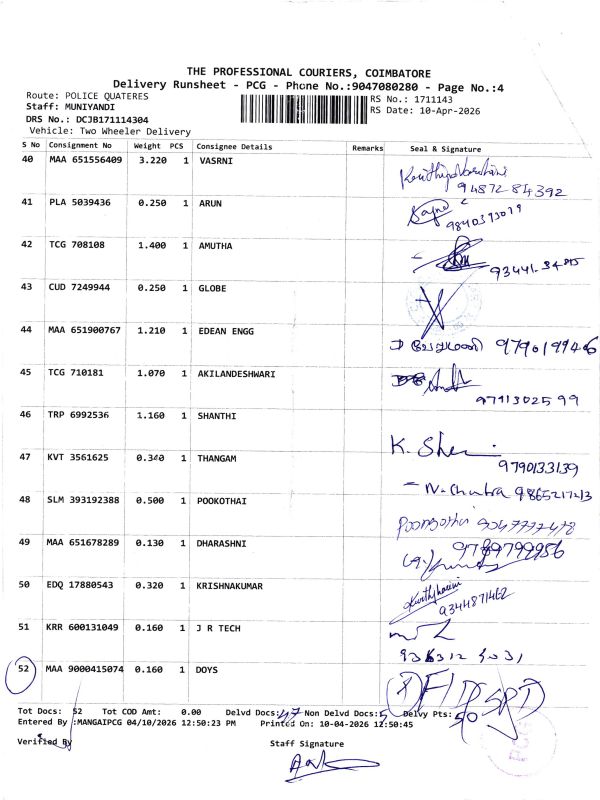 THE PROFESSIONAL COURIERS, COIMBATORE
Delivery Runsheet - PCG - Phone No.:9047080280 - Page No.:4
Route: POLICE QUATERES
RS No.: 1711143
Staff: MUNIYANDI
RS Date: 10-Apr-2026
DRS No.: DCJB171114304
Vehicle: Two Wheeler Delivery
S No Consignment No Weight PCS Consignee Details Remarks Seal & Signature
40 MAA 651556409 3.220 1 VASRNI
9487284392
41 PLA 5039436 0.250 1 ARUN
9840393079
42 TCG 708108 1.400 1 AMUTHA
43 CUD 7249944 0.250 1 GLOBE
44 MAA 651900767 1.210 1 EDEAN ENGG
9790199406
45 TCG 710181 1.070 1 AKILANDESHWARI
9791302599
46 TRP 6992536 1.160 1 SHANTHI
K.
9790133139
47 KVT 3561625 0.340 1 THANGAM
N. Chitra 9865217213
48 SLM 393192388 0.500 1 POOKOTHAI
49 MAA 651678289 0.130 1 DHARASHNI
9789799956
50 EDQ 17880543 0.320 1 KRISHNAKUMAR
9344871462
51 KRR 600131049 0.160 1 J R TECH
52 MAA 9000415074 0.160 1 DOYS
Tot Docs: 52 Tot COD Amt: 0.00 Delvd Docs: 47 Non Delvd Docs: 5 Delvy Pts: 50
Entered By :MANGAIPCG 04/10/2026 12:50:23 PM Printed On: 10-04-2026 12:50:45
Verified By
Staff Signature